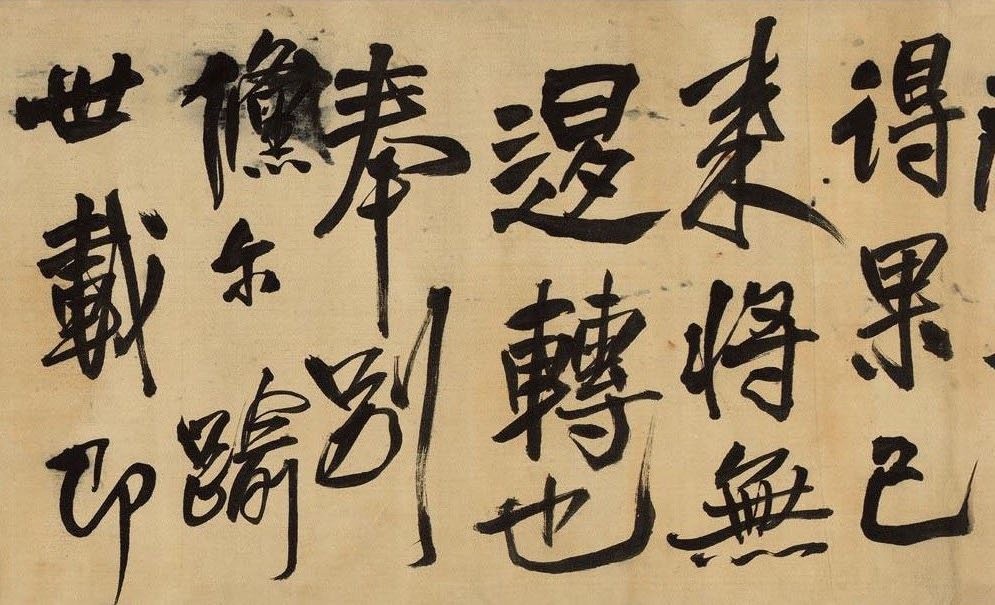 得果已
来将無
退轉也
奉别
儵尔踰
世載即